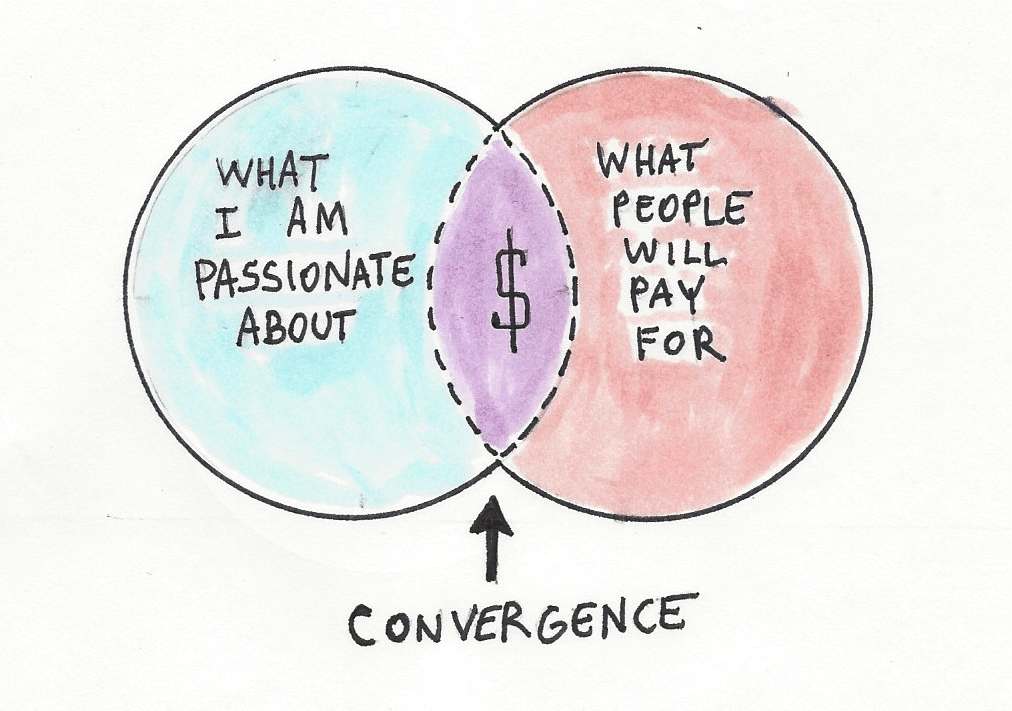 WHAT
I AM
PASSIONATE
ABOUT
$
WHAT
PEOPLE
WILL
PAY
FOR
CONVERGENCE